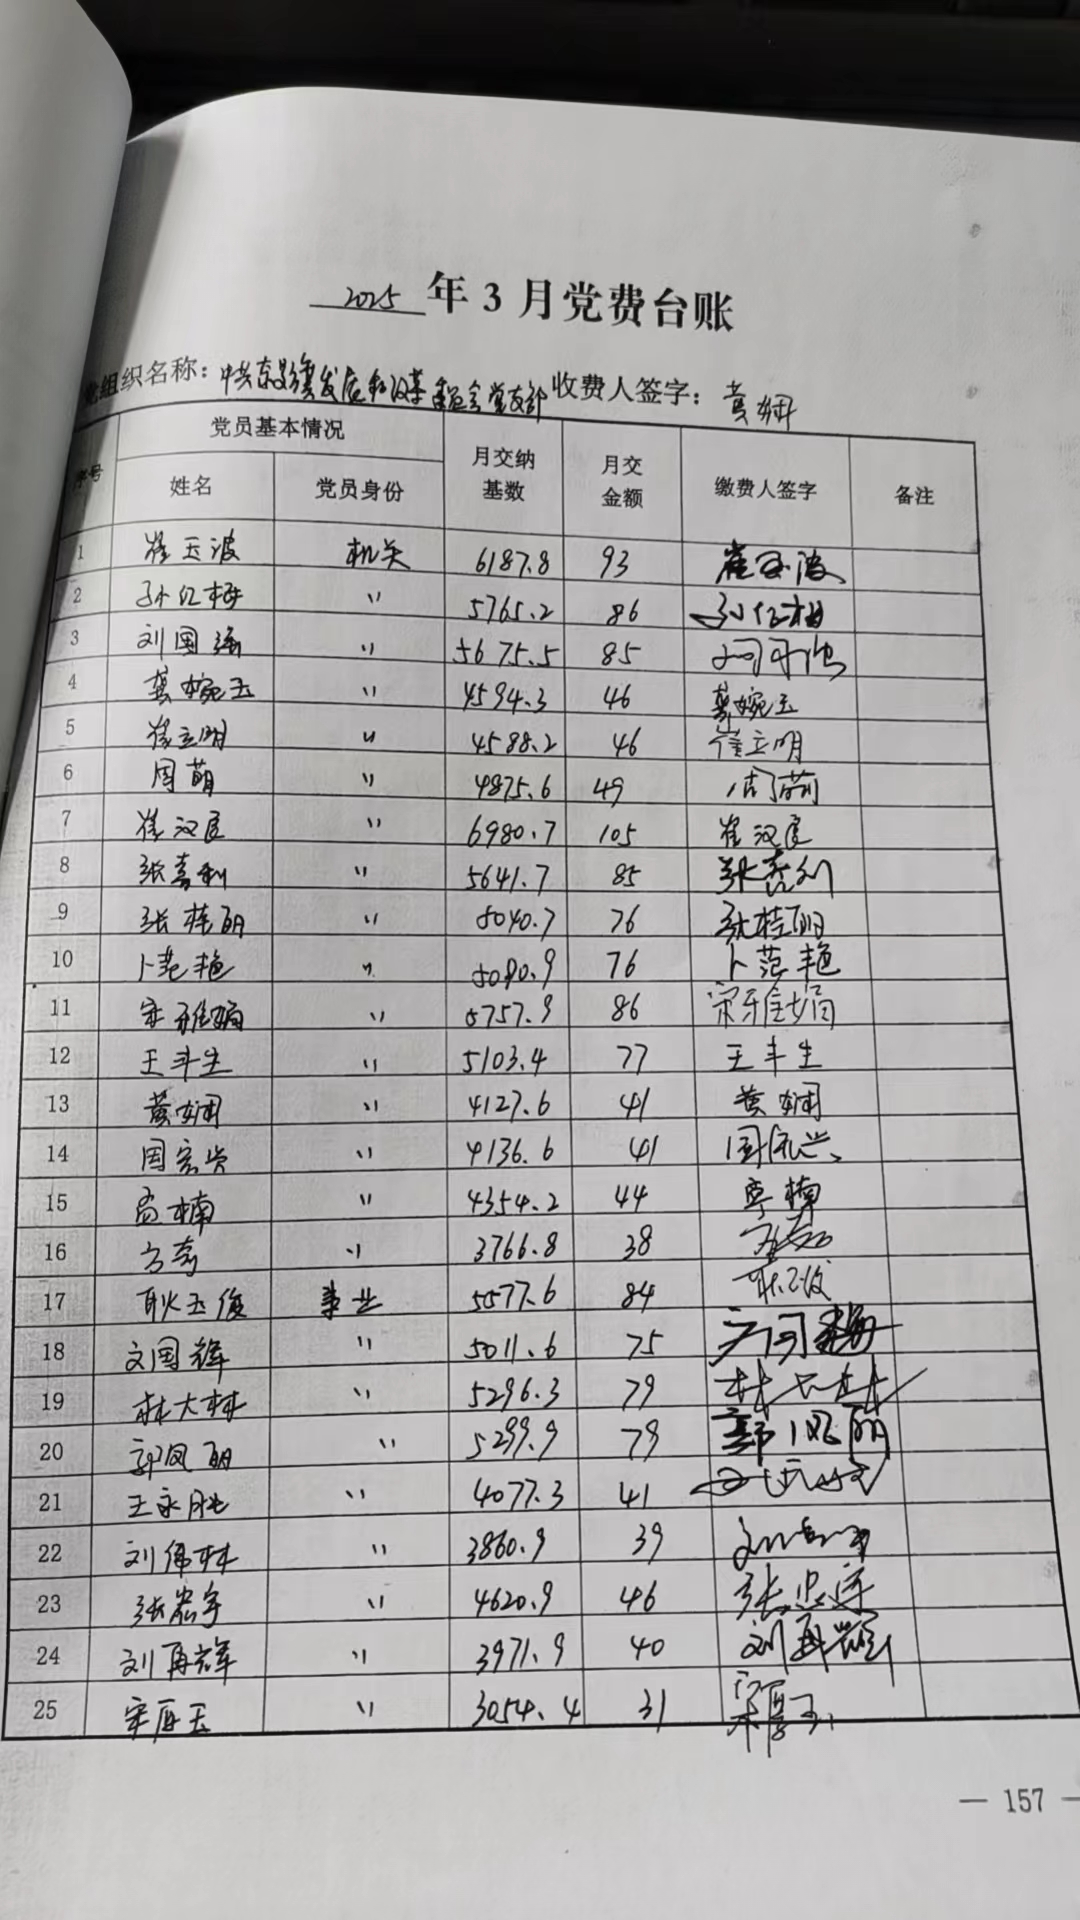 2025 年 3 月党费台账
党组织名称：中共东 县发展和改革委员会党支部 收费人签字：黄娴
序号 党员基本情况 月交纳基数 月交金额 缴费人签字 备注
姓名 党员身份
1 崔玉波 机关 6187.8 93 崔玉波
2 孙红梅 〃 5765.2 86 孙红梅
3 刘国强 〃 5675.5 85
4 龚婉玉 〃 4594.3 46 龚婉玉
5 崔立明 〃 4588.2 46 崔立明
6 周萌 〃 4875.6 49 周萌
7 崔汉良 〃 6980.7 105 崔汉良
8 张喜利 〃 5641.7 85 张喜利
9 张桂丽 〃 5040.7 76 张桂丽
10 卜范艳 〃 5090.9 76 卜范艳
11 宋雅娟 〃 5757.9 86 宋雅娟
12 王丰生 〃 5103.4 77 王丰生
13 黄娴 〃 4127.6 41 黄娴
14 周宏 〃 4136.6 41
15 楠 〃 4354.2 44 楠
16 〃 3766.8 38
17 耿玉俊 事业 5577.6 84
18 刘国辉 〃 5011.6 75
19 林大林 〃 5296.3 79 林大林
20 郭凤丽 〃 5299.9 79 郭凤丽
21 王永胜 〃 4077.3 41
22 刘伟林 〃 3860.9 39
23 张宏宇 〃 4620.9 46 张
24 刘再辉 〃 3971.9 40 刘再辉
25 宋厚玉 〃 3054.4 31 宋厚玉
— 157 —